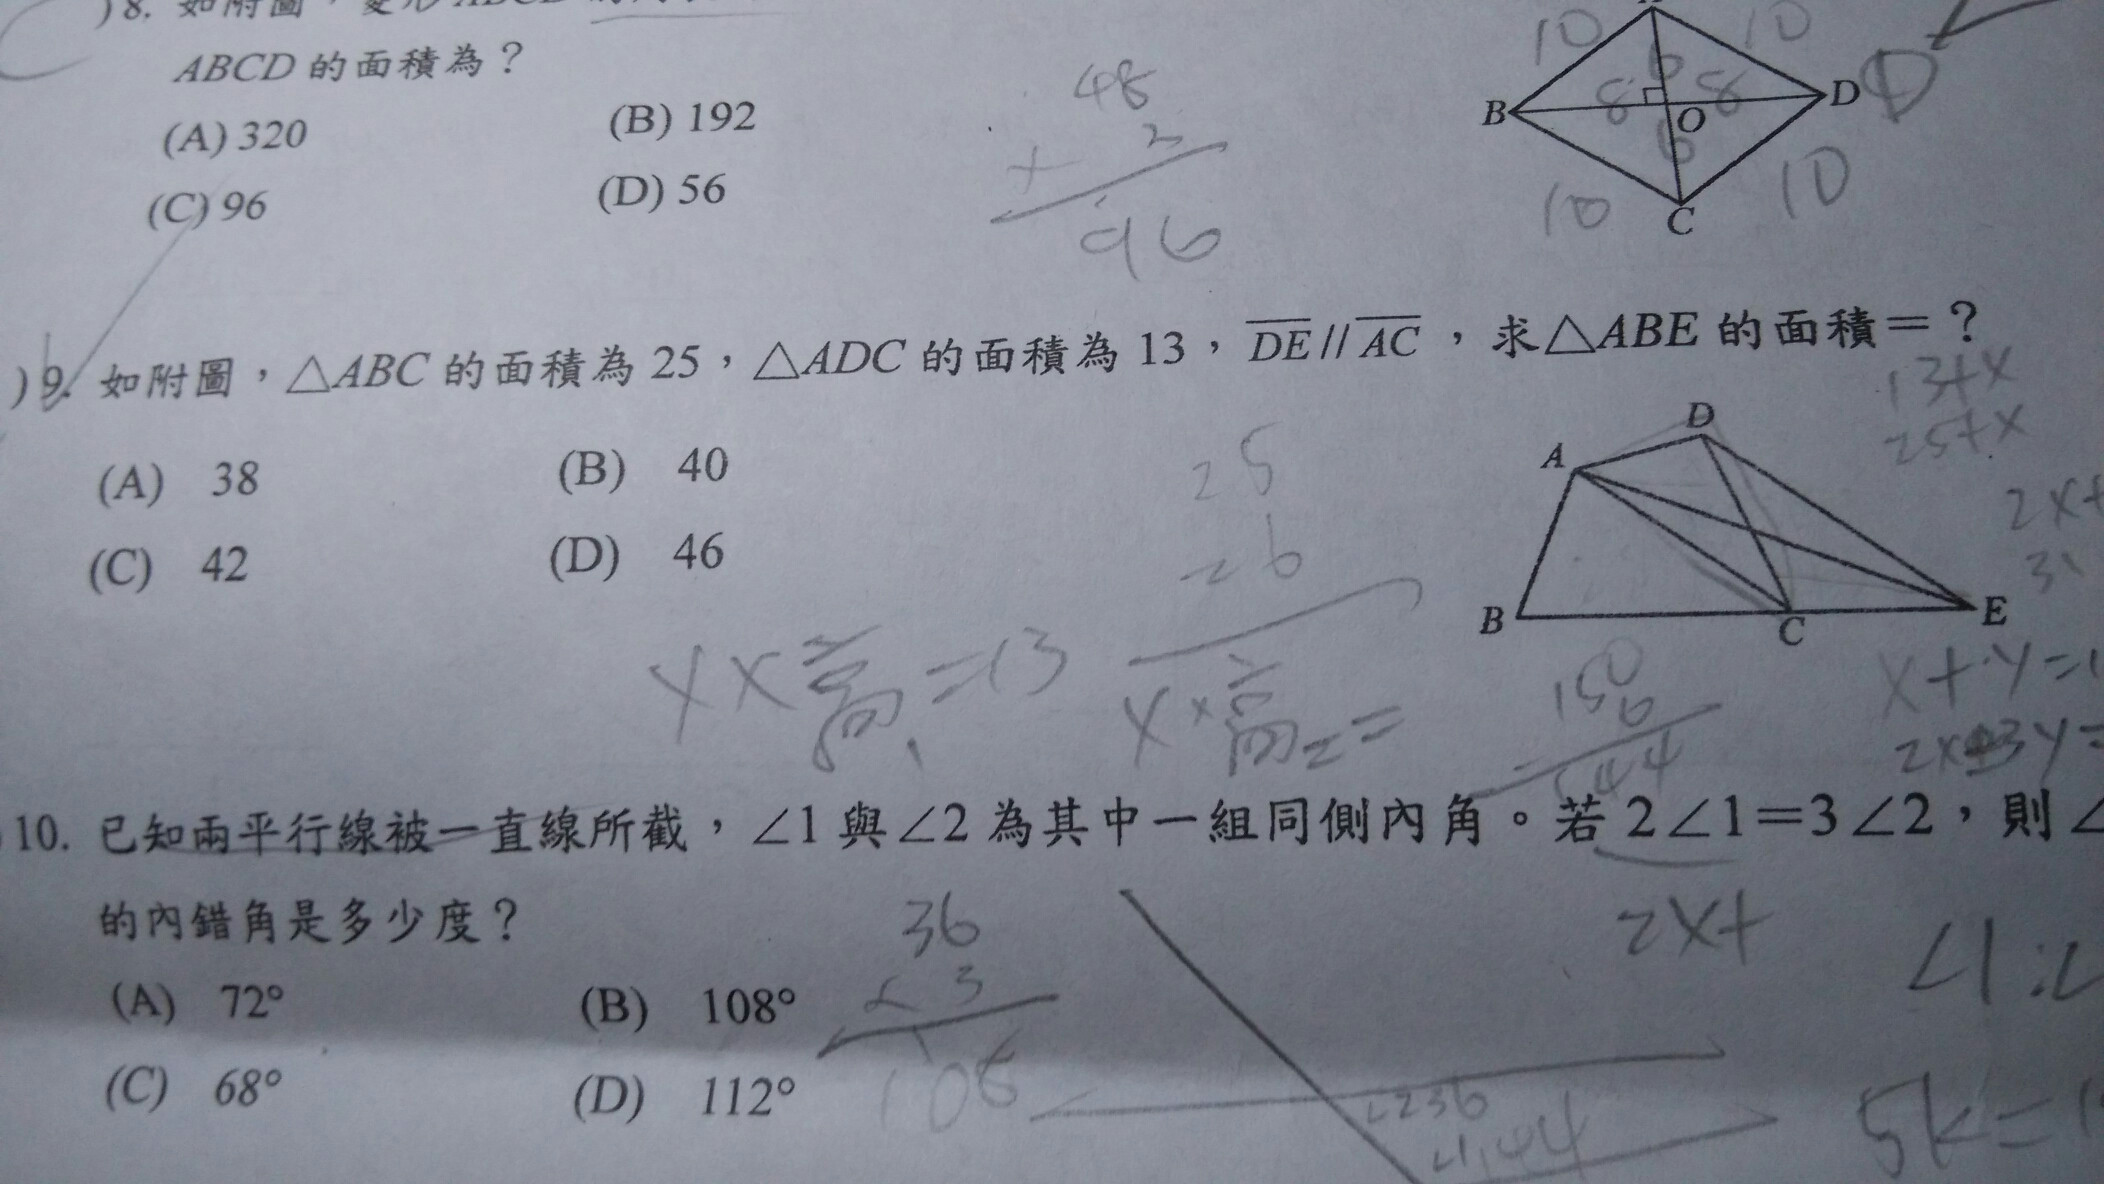 )8. 如附圖，菱形 ABCD
ABCD 的面積為？
(A) 320
(B) 192
(C) 96
(D) 56
48
2
96
10
10
10
10
6
8
8
6
B
D
O
C
D
)9. 如附圖，△ABC 的面積為 25，△ADC 的面積為 13，DE // AC，求△ABE 的面積＝？
(A) 38
(B) 40
(C) 42
(D) 46
13+x
25+x
2x+
25
26
A
D
B
C
E
高1=13
高2=
150
6
144
x+y=1
10. 已知兩平行線被一直線所截，∠1 與∠2 為其中一組同側內角。若 2∠1＝3∠2，則∠
的內錯角是多少度？
(A) 72°
(B) 108°
(C) 68°
(D) 112°
36
3
108
2x+
∠1:∠
∠236
144
5k=1